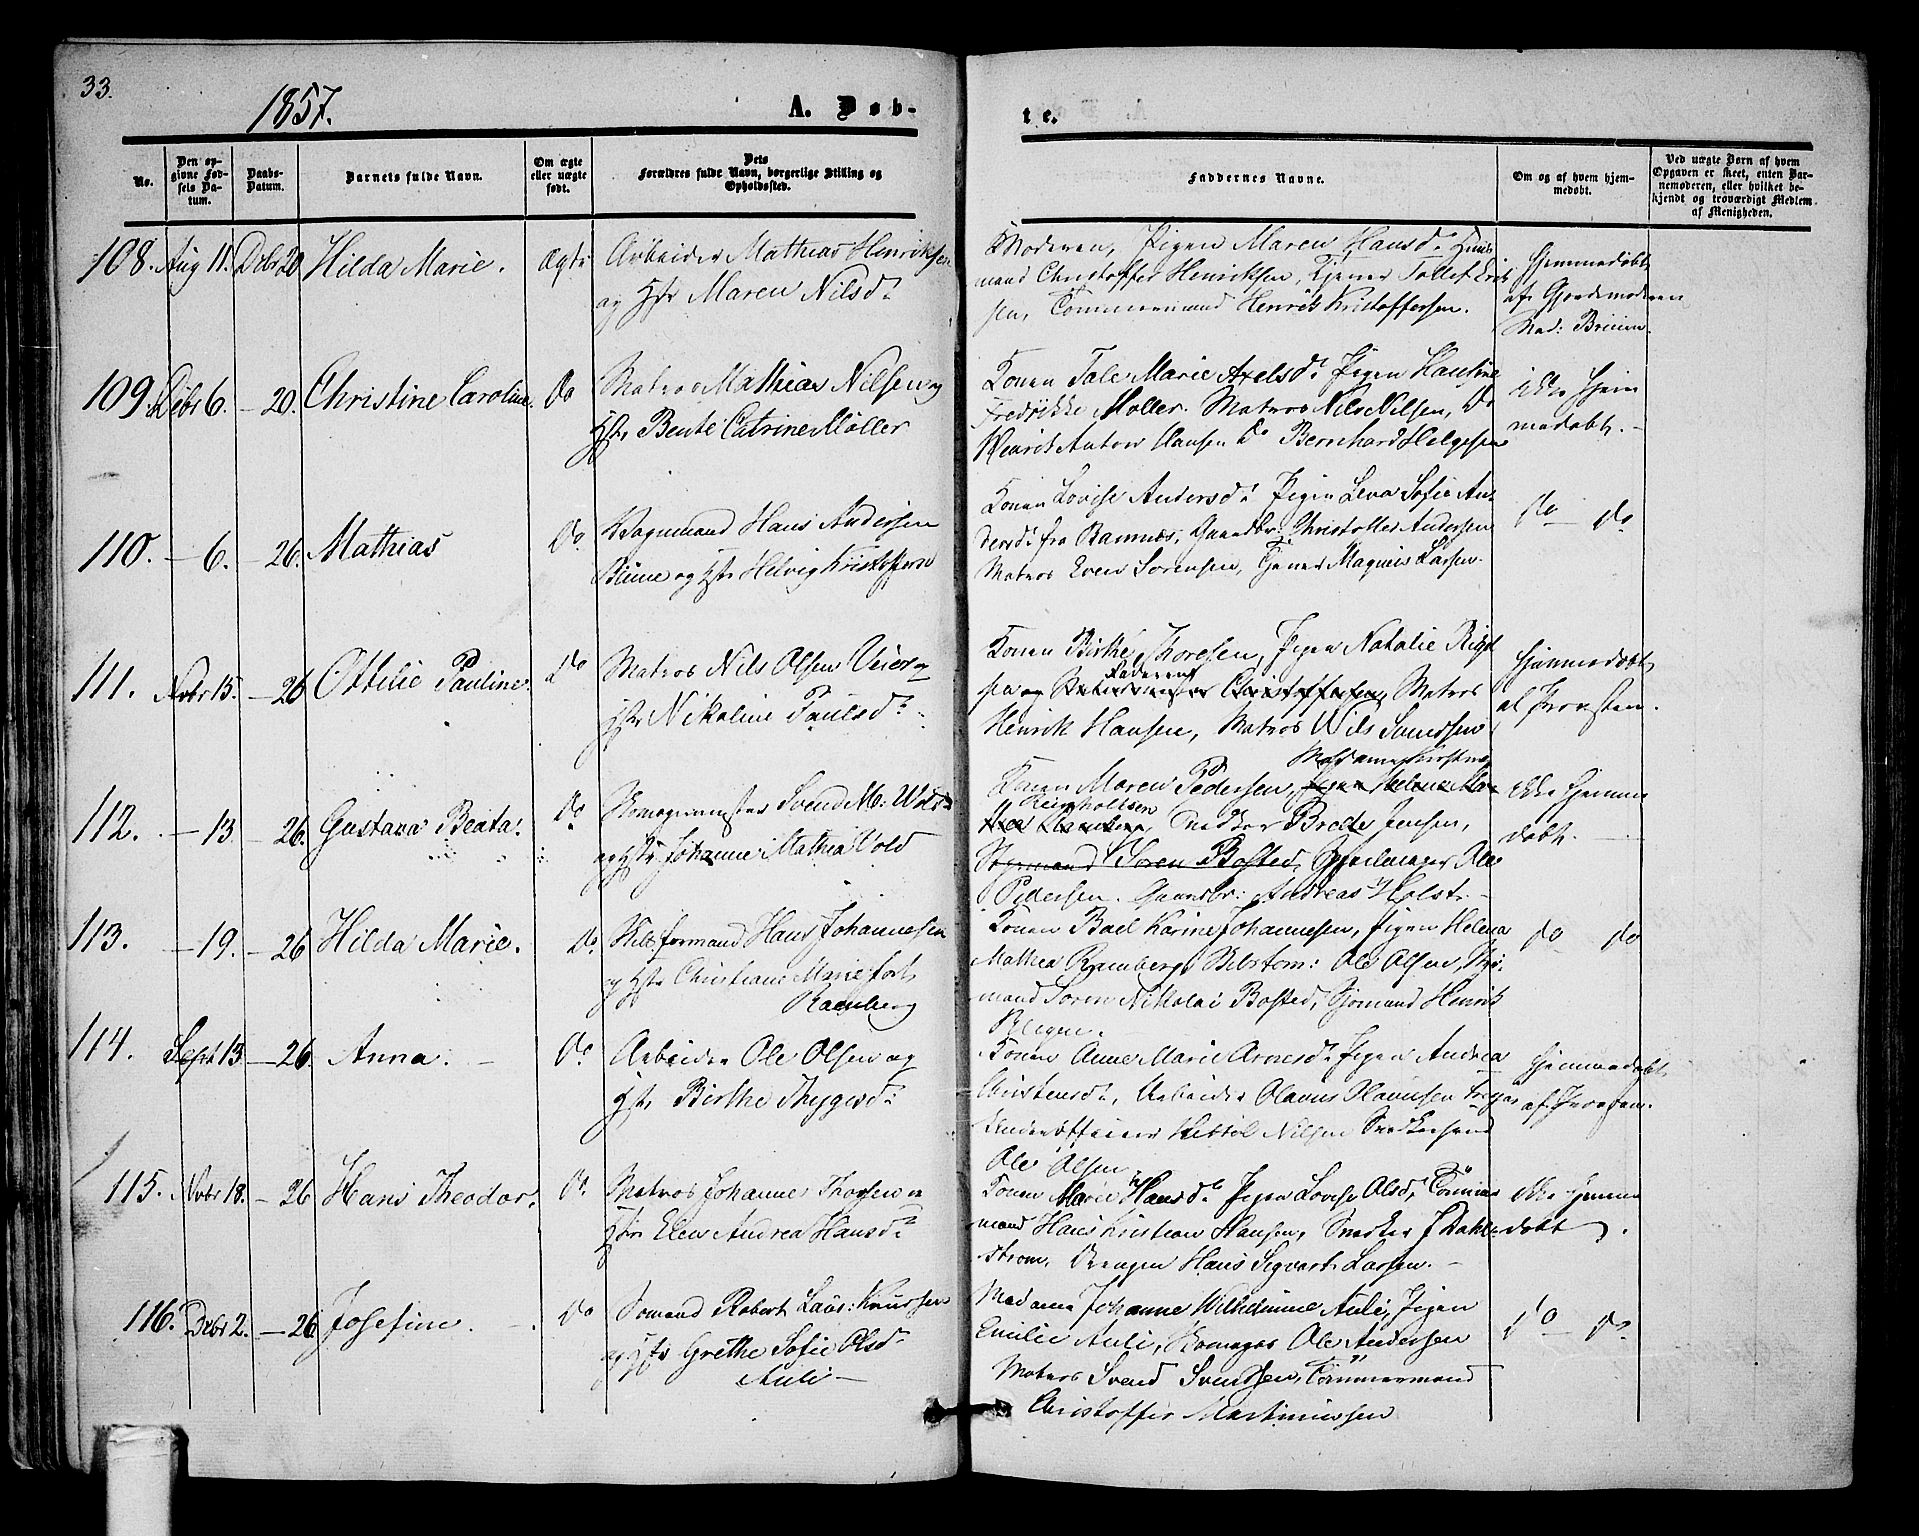 33.
1857.
A. Døb-
te.
No.
Den op-
givne Fød-
sels Da-
tum.
Daabs-
Datum.
Barnets fulde Navn.
Om ægte
eller uægte
født.
Dets
Forældres fulde Navn, borgerlige Stilling og
Opholdssted.
Faddernes Navne.
Om og af hvem hjem-
medøbt.
Ved uægte Børn af hvem
Opgaven er skeet, enten Bar-
nemoderen, eller hvilket be-
kjendt og troværdigt Medlem
af Menigheden.
108. Aug 11. Dcbr 20 Hilda Marie. Ægte Arbeider Mathias Henriksen
og Hstr Maren Nilsd.
Moderen, Pigen Maren Hansd.
mand Christoffer Henriksen, Tjener Tollef Erik
sen, Tømmermand Henrik Kristoffersen.
Hjemmedøbt
af Gjordemoderen
Mad:
109. Dcbr 6. – 20. Christine Caroline. do Matros Mathias Nilsen og
Hstr Bente Catrine Møller
Konen Tale Marie Axelsd. Pigen Hansine
Fredrikke Møller. Matros Nils Nilsen, do
Henrik Anton Hansen do Bernhard Helgesen
ikke hjem
medøbt. –
110. – 6. – 26. Mathias do. Hans Andersen
og Hstr Helvig
Konen Lovise Andersd. Pigen Lena Sofie An
dersd. fra Bamnæs, Gaardbr: Christoffer Andersen
Matros Even Sørensen, Tjener Magnus Larsen.
do – do
111. Nvbr 15. – 26 Ottilie Pauline. do Matros Nils Olsen Veier og
Hstr Nikoline Paulsd.
Konen Birthe Thoresen, Pigen Natalie
sen og Faderen Christoffersen, Matros
Henrik Hansen, Matros Nils Svendsen
Hjemmedøbt
af
112. – 13 – 26. Gustava Beata. do Svend M:
og Hstr Johanne Mathea Vold
Madame Kirstine
Konen Maren Pedersen, Pigen Helene Ma-
Reinholtsen
thea Ramberg, Snedker Brede Jensen,
Søren Bofted, Ole
Pedersen. Gaardbr: Andreas Holst –
Ikke hjemme
døbt. –
113. – 19. – 26 Hilda Marie. do. formand Hans Johannesen
og Hstr Christiane Marie født
Ramberg
Konen Boel Karine Johannesen, Pigen Helena
Mathea Ramberg, Ole Olsen,
mand Søren Nikolai Bofted, Sjømand Henrik
do do
114. Sept 13 – 26. Anna. – do Arbeider Ole Olsen og
Hstr Birthe Thygesd:
Konen Anne Marie Arnesd. Pigen Andrea
Christensd., Arbeider Olavus Olavusen
Underofficier Kittil Nilsen
Ole Olsen
Hjemmedøbt
af
115. Nvbr 18. – 26 Hans Theodor. do. Matros Johannes Thorsen og
Hstr Elen Andrea Hansd.
Konen Maren Hansd. Pigen Lovise Olsd. Tømmer
mand Hans Kristian Hansen, Snedker J Dahl-
strøm, Drengen Hans Segvart Larsen. –
Ikke hjemme
døbt.
116. Dcbr 2. – 26 Josefine. do Sømand Robert Laus: Knutsen
og Hstr Grethe Sofie Olsd.
Auli –
Madame Johanne Wilhelmine Auli, Pigen
Emilie Auli, Ole Andersen
Matros Svend Svendsen, Tømmermand
Christoffer Martiniussen
do – do.